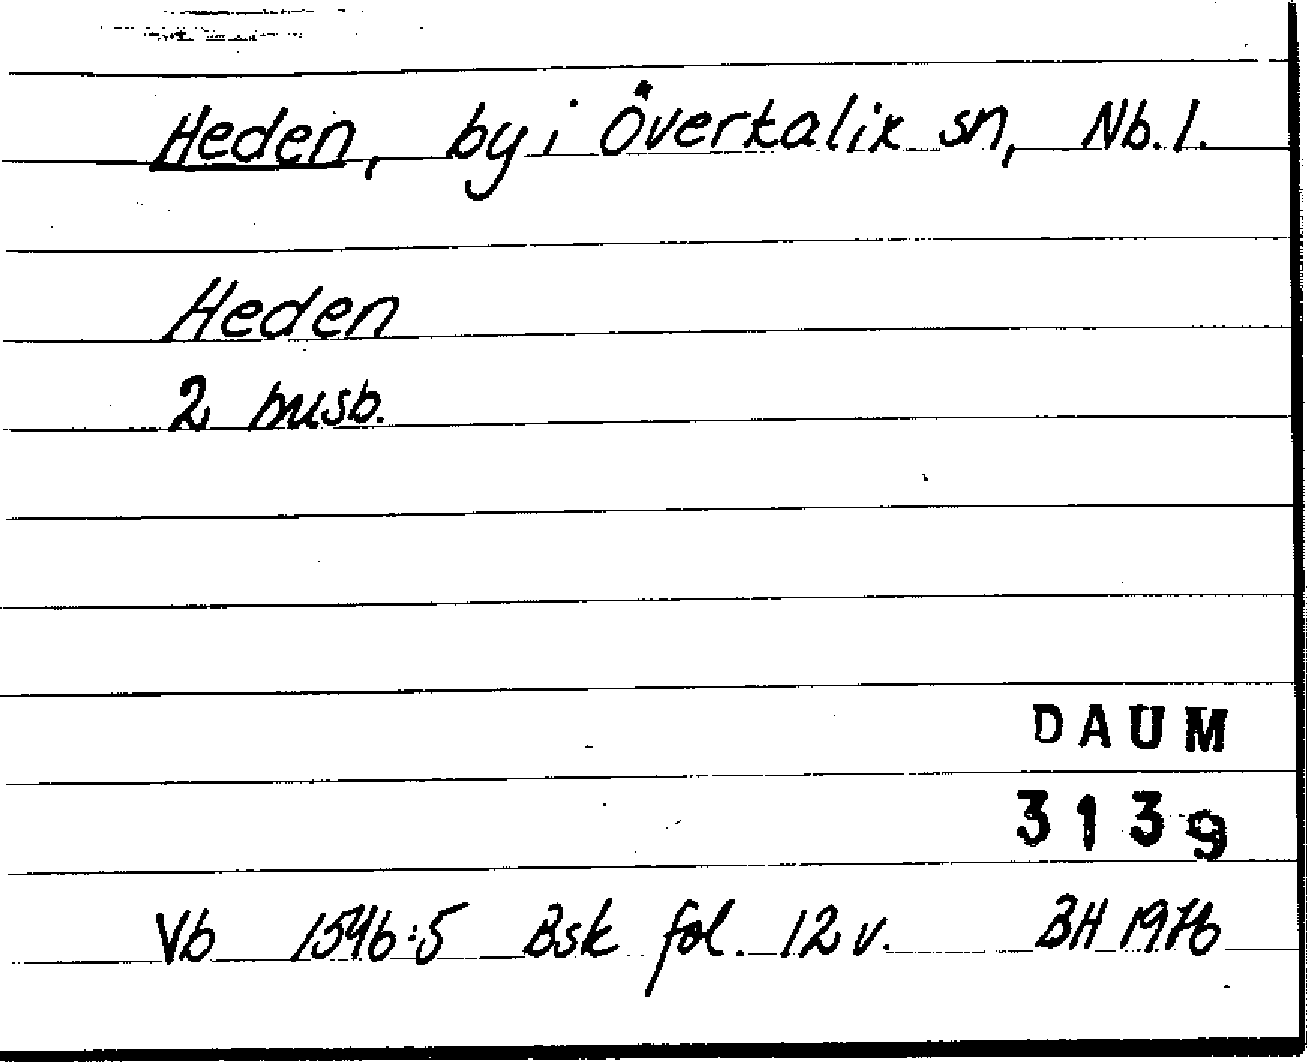 Heden, by i Överkalix sn, Nb.l.
Heden
2 husb.
DAUM
3139
Vb 1546:5 Bsk fol. 12 v. BH 1976